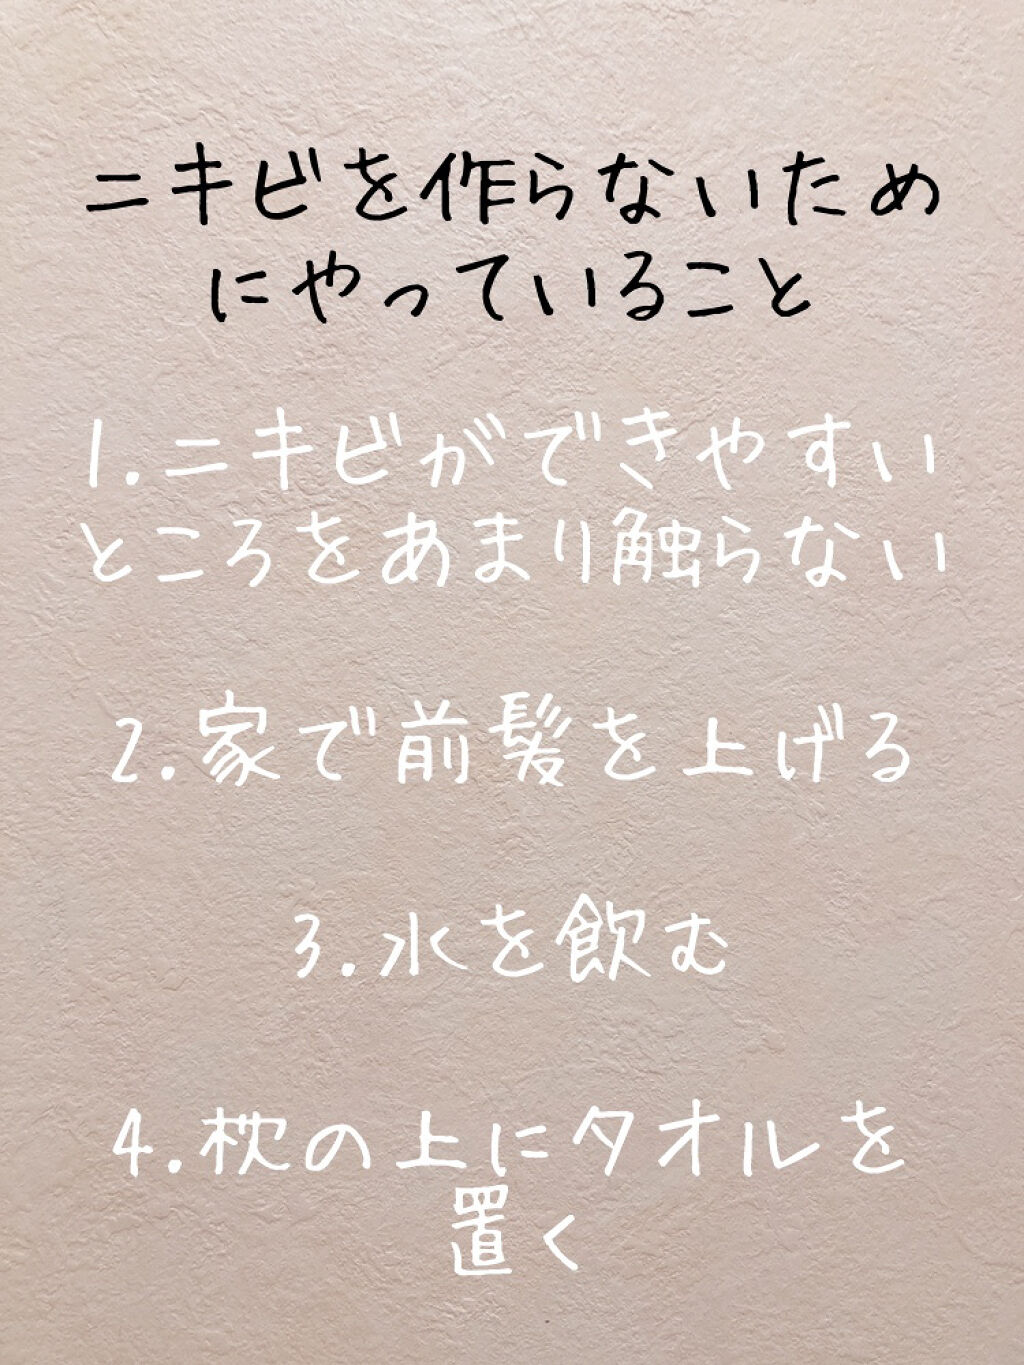 ニキビを作らないため
にやっていること
1.ニキビができやすい
ところをあまり触らない
2.家で前髪を上げる
3.水を飲む
4.枕の上にタオルを
置く